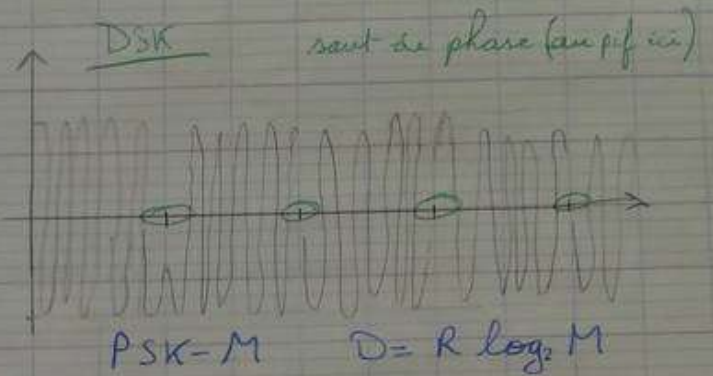 DSK saut de phase (au pif ici)
PSK-M D= R log₂ M